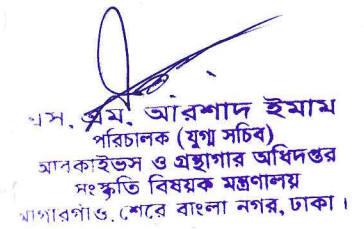 এস. এম. আরশাদ ইমাম
পরিচালক (যুগ্ম সচিব)
আরকাইভস ও গ্রন্থাগার অধিদপ্তর
সংস্কৃতি বিষয়ক মন্ত্রণালয়
আগারগাঁও, শেরে বাংলা নগর, ঢাকা।